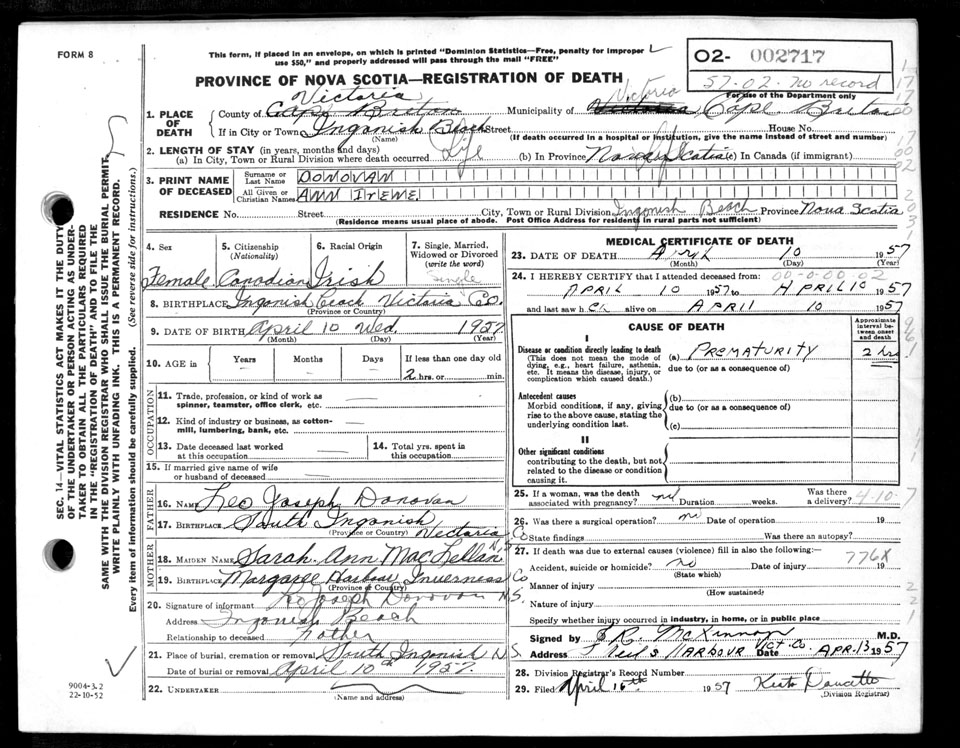 FORM 8
This form, if placed in an envelope, on which is printed "Dominion Statistics—Free, penalty for improper
use $50," and properly addressed will pass through the mail "FREE"
02- 002717
57-02-no record
For use of the Department only
PROVINCE OF NOVA SCOTIA—REGISTRATION OF DEATH
1. PLACE OF DEATH
Victoria
Victoria
County of Cape Breton Municipality of Victoria Cape Breton
If in City or Town Ingonish Beach Street House No.
(Name) (If death occurred in a hospital or institution, give the name instead of street and number)
2. LENGTH OF STAY (in years, months and days)
(a) In City, Town or Rural Division where death occurred Life (b) In Province Nova Scotia (c) In Canada (if immigrant)
3. PRINT NAME OF DECEASED
Surname or Last Name DONOVAN
All Given or Christian Names ANN IRENE
RESIDENCE No. Street City, Town or Rural Division Ingonish Beach Province Nova Scotia
(Residence means usual place of abode. Post Office Address for residents in rural parts not sufficient)
4. Sex
Female
5. Citizenship (Nationality)
Canadian
6. Racial Origin
Irish
7. Single, Married, Widowed or Divorced (write the word)
Single
8. BIRTHPLACE Ingonish Beach Victoria Co.
(Province or Country)
9. DATE OF BIRTH April 10 Wed. 1957
(Month) (Day) (Year)
10. AGE in Years Months Days If less than one day old
2 hrs. or min.
OCCUPATION
11. Trade, profession, or kind of work as
spinner, teamster, office clerk, etc.
12. Kind of industry or business, as cotton-
mill, lumbering, bank, etc.
13. Date deceased last worked
at this occupation
14. Total yrs. spent in
this occupation
15. If married give name of wife
or husband of deceased
FATHER
16. NAME Leo Joseph Donovan
17. BIRTHPLACE South Ingonish Victoria Co
(Province or Country) N.S
MOTHER
18. MAIDEN NAME Sarah Ann MacLellan
19. BIRTHPLACE Margaree Harbour Inverness Co
(Province or Country) N.S.
20. Signature of informant Leo Joseph Donovan
Address Ingonish Beach
Relationship to deceased Father
21. Place of burial, cremation or removal South Ingonish N.S.
Date of burial or removal April 10th 1957.
22. UNDERTAKER
(Name and address)
MEDICAL CERTIFICATE OF DEATH
23. DATE OF DEATH April 10 1957
(Month) (Day) (Year)
24. I HEREBY CERTIFY that I attended deceased from:
00-0.00.02
APRIL 10 1957 to APRIL 10 1957
and last saw h alive on APRIL 10 1957
CAUSE OF DEATH
Approximate interval between onset and death
I
Disease or condition directly leading to death (a) PREMATURITY 2 hrs
(This does not mean the mode of
dying, e.g., heart failure, asthenia,
etc. It means the disease, injury, or
complication which caused death.)
due to (or as a consequence of)
Antecedent causes
Morbid conditions, if any, giving
rise to the above cause, stating the
underlying condition last.
(b)
due to (or as a consequence of)
(c)
II
Other significant conditions
contributing to the death, but not
related to the disease or condition
causing it.
25. If a woman, was the death
associated with pregnancy? no Duration weeks. Was there
a delivery? 4-10-7
26. Was there a surgical operation? no Date of operation 19
State findings Was there an autopsy?
27. If death was due to external causes (violence) fill in also the following:—
776X
Accident, suicide or homicide? no Date of injury 19
(State which)
Manner of injury
(How sustained)
Nature of injury
Specify whether injury occurred in industry, in home, or in public place
Signed by McKinnon M.D.
Address Neil's Harbour Vict. Co. Date APR. 13 1957
28. Division Registrar's Record Number
29. Filed April 16th 1957
(Division Registrar)
SEC. 14—VITAL STATISTICS ACT MAKES IT THE DUTY
OF THE UNDERTAKER OR PERSON ACTING AS UNDER-
TAKER TO OBTAIN ALL THE PARTICULARS REQUIRED
IN THE "REGISTRATION OF DEATH" AND TO FILE THE
SAME WITH THE DIVISION REGISTRAR WHO SHALL ISSUE THE BURIAL PERMIT
WRITE PLAINLY WITH UNFADING INK. THIS IS A PERMANENT RECORD.
Every item of information should be carefully supplied. (See reverse side for instructions.)
9004-3.2
22-10-52